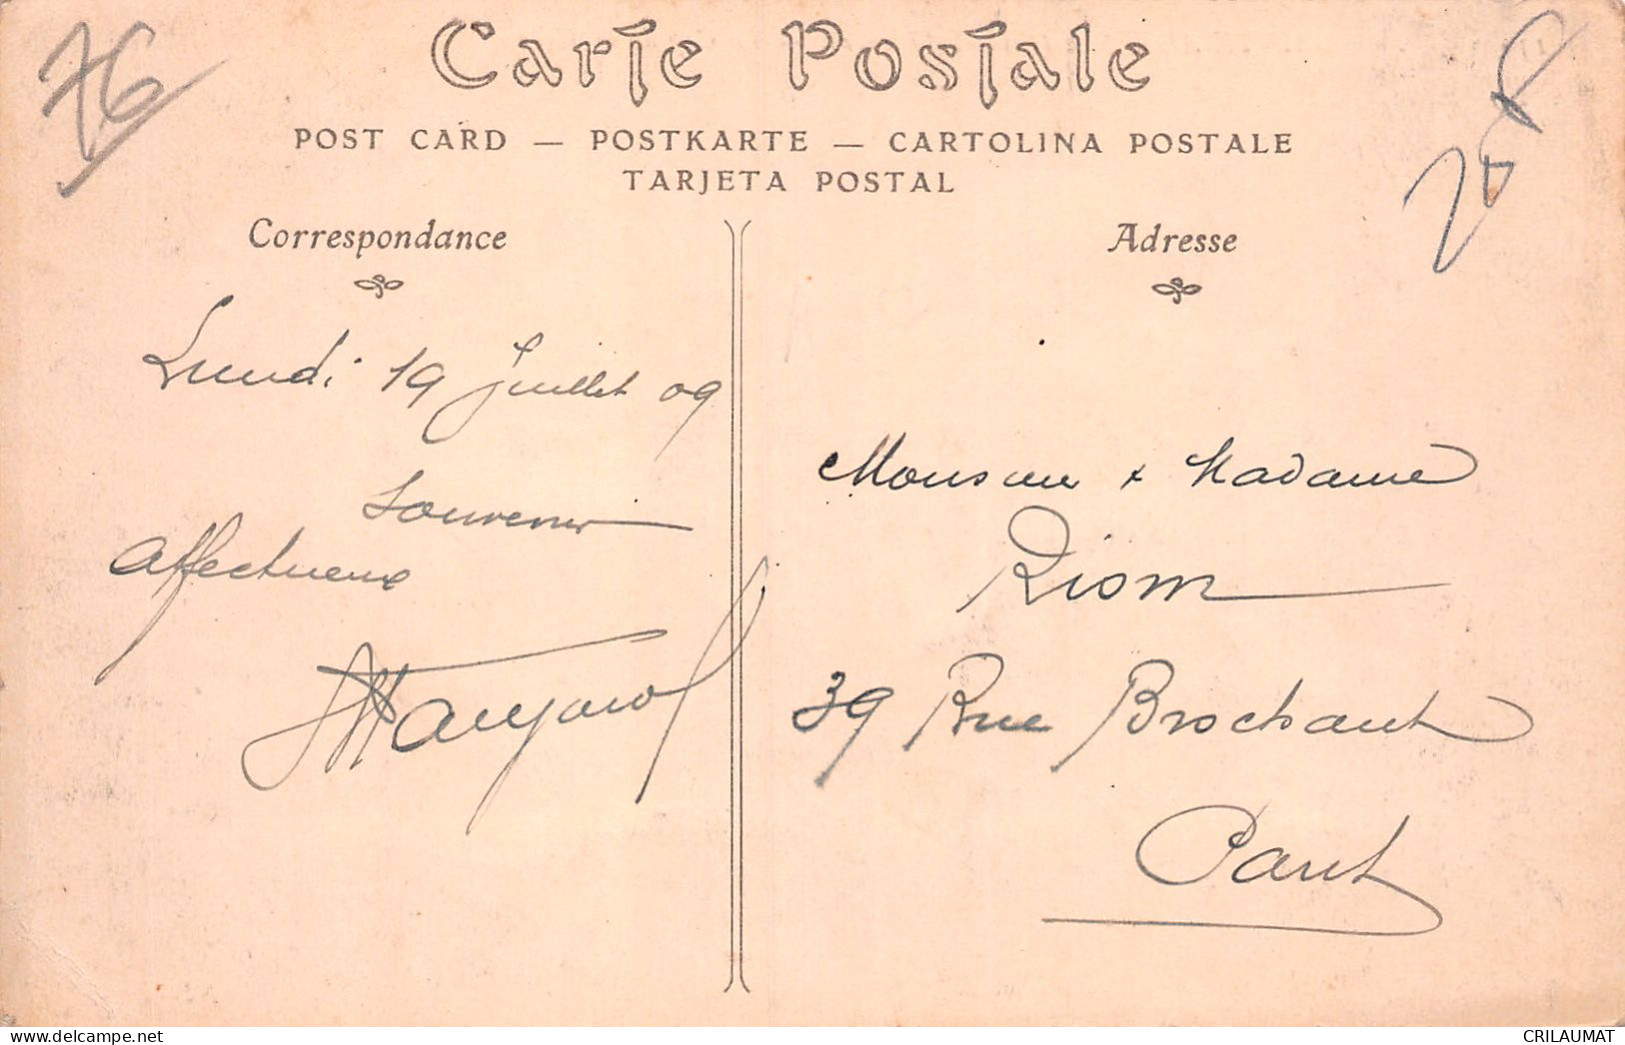 76
Carte Postale
POST CARD — POSTKARTE — CARTOLINA POSTALE
TARJETA POSTAL
Correspondance
Adresse
Lundi 19 juillet 09
Souvenir
affectueux
Monsieur & Madame
Riom
39 Rue Brochant
Paris
CRILAUMAT